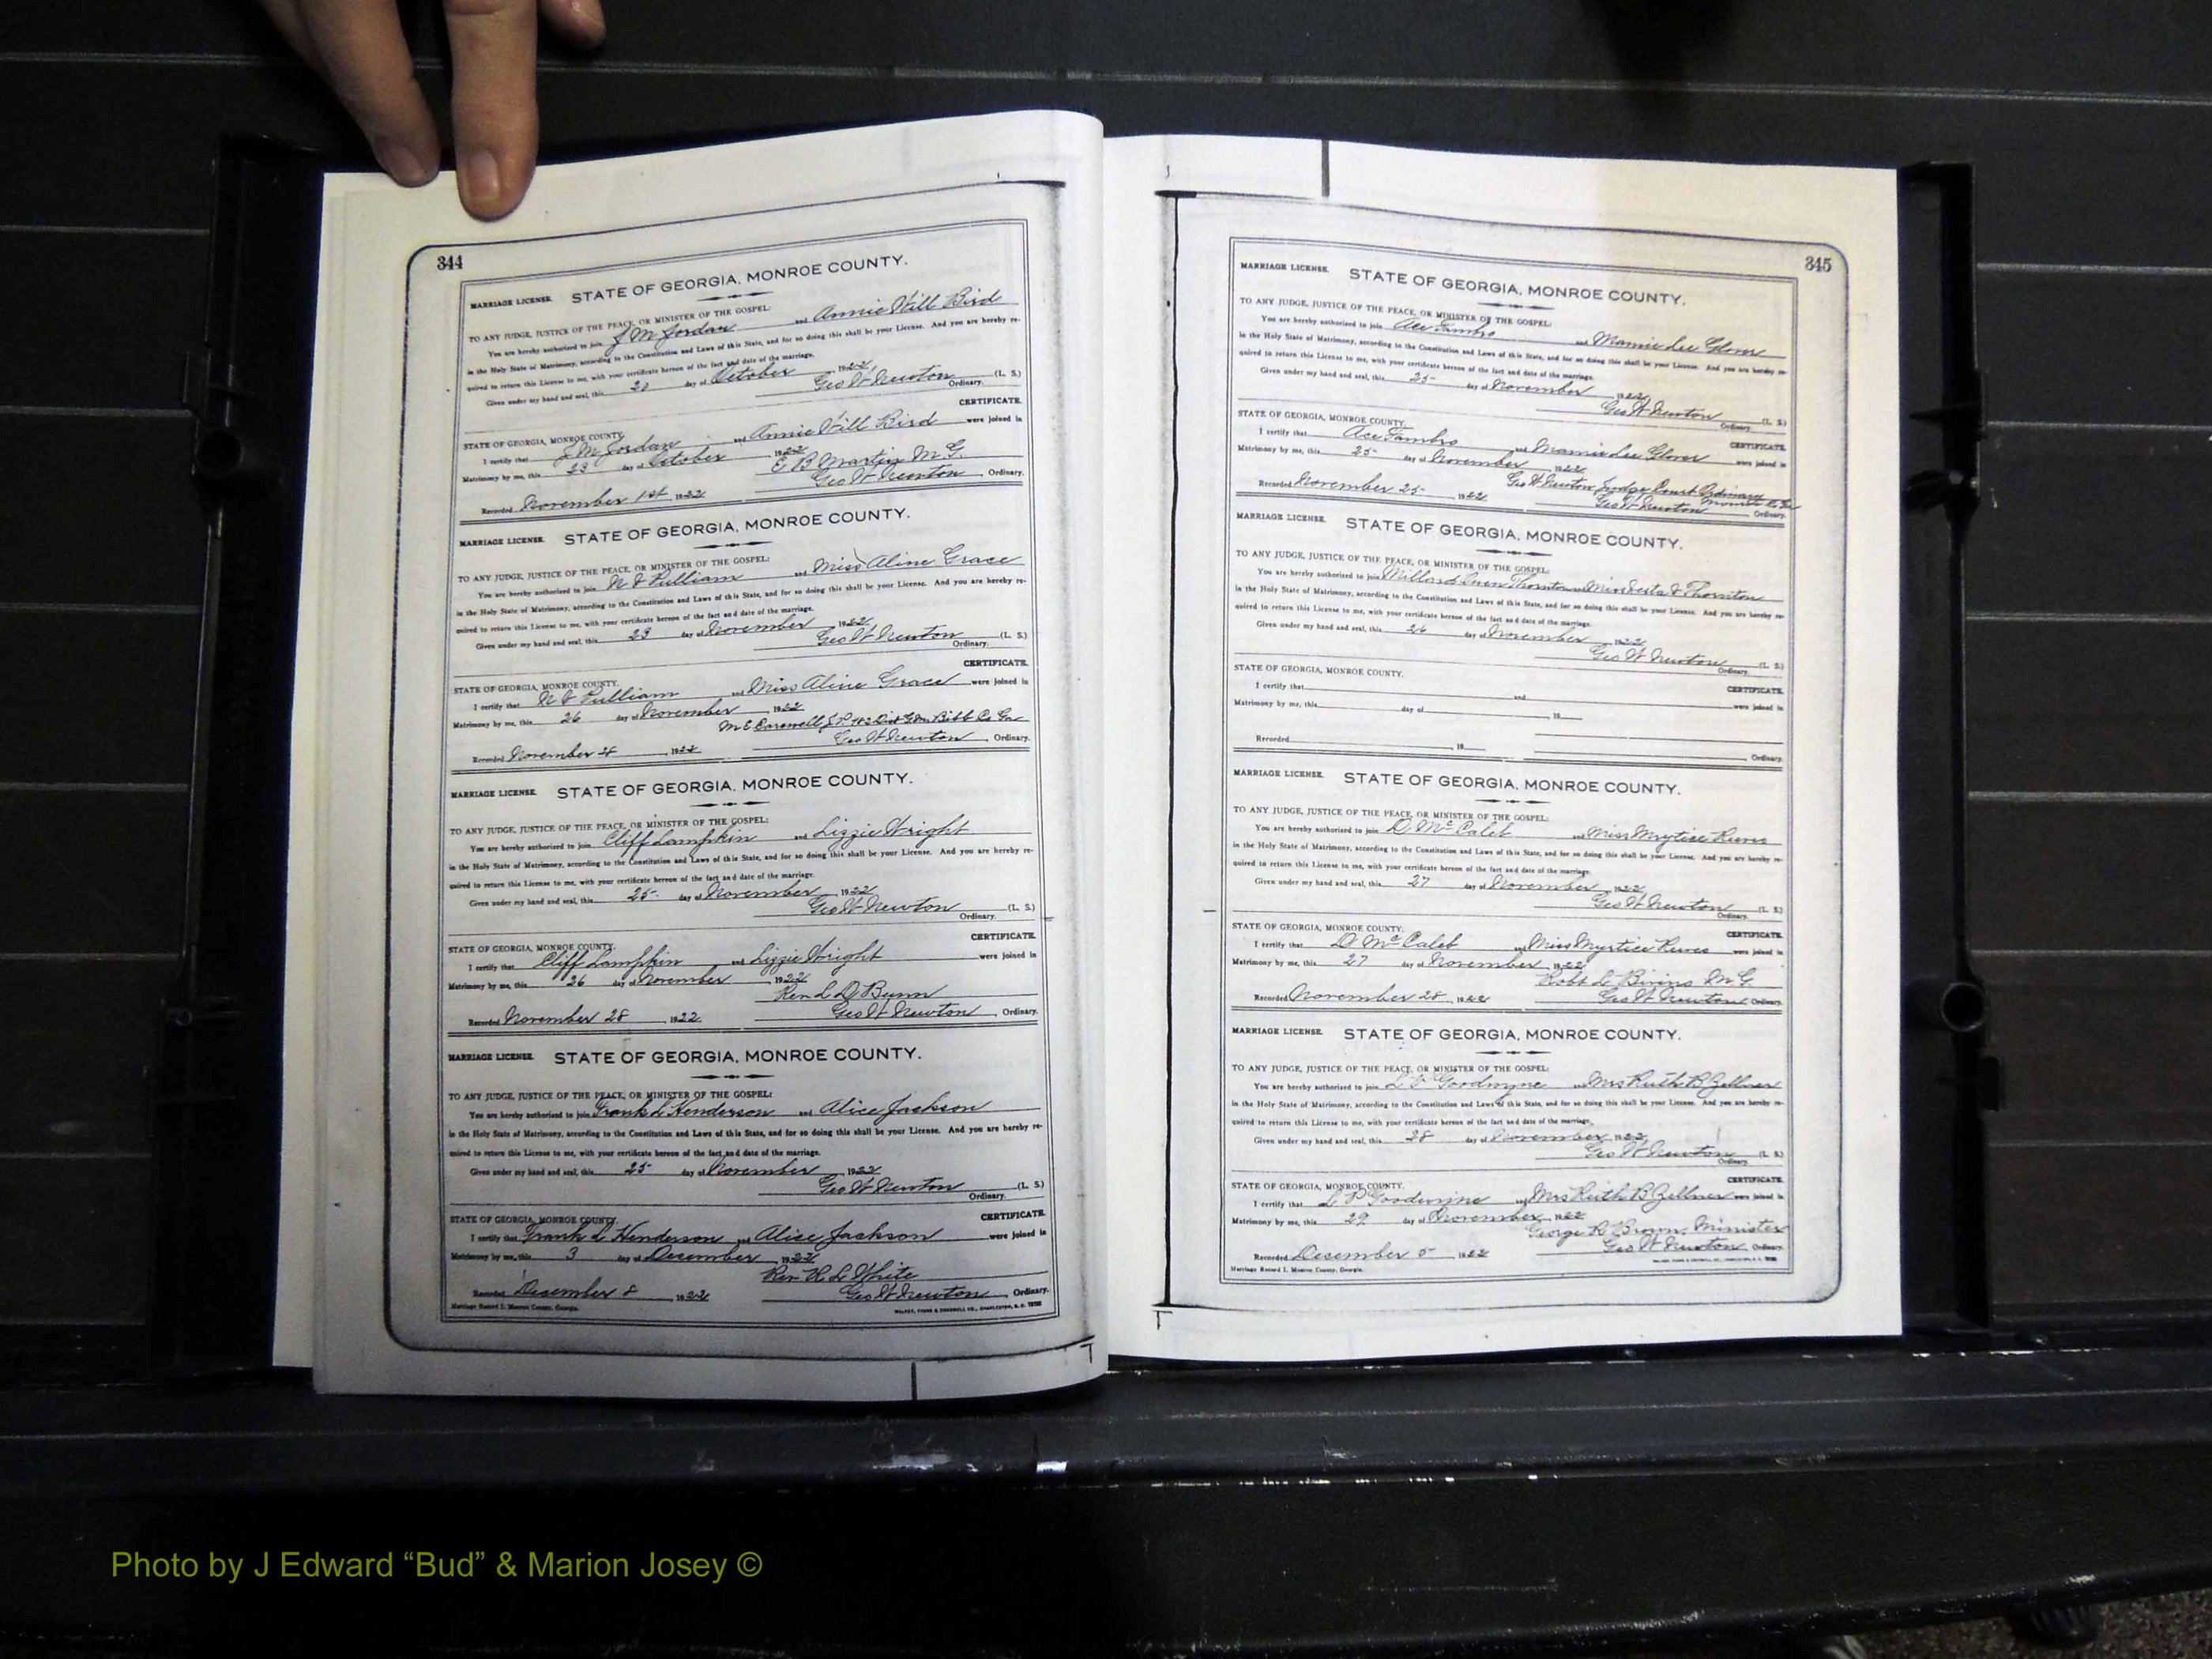 344
MARRIAGE LICENSE. STATE OF GEORGIA, MONROE COUNTY.
TO ANY JUDGE, JUSTICE OF THE PEACE, OR MINISTER OF THE GOSPEL:
You are hereby authorized to join J M Jordan and Annie Will Bird
in the Holy State of Matrimony, according to the Constitution and Laws of this State, and for so doing this shall be your License. And you are hereby re-
quired to return this License to me, with your certificate hereon of the fact and date of the marriage.
Given under my hand and seal, this day of October 1922
Geo W Newton (L. S.)
Ordinary.
CERTIFICATE.
STATE OF GEORGIA, MONROE COUNTY.
I certify that J M Jordan and Annie Will Bird were joined in
Matrimony by me, this 23 day of October 1922
E B Martin M. G.
Recorded November 1st 1922 Geo W Newton Ordinary.
MARRIAGE LICENSE. STATE OF GEORGIA, MONROE COUNTY.
TO ANY JUDGE, JUSTICE OF THE PEACE, OR MINISTER OF THE GOSPEL:
You are hereby authorized to join Pulliam and Miss Aline Grace
in the Holy State of Matrimony, according to the Constitution and Laws of this State, and for so doing this shall be your License. And you are hereby re-
quired to return this License to me, with your certificate hereon of the fact and date of the marriage.
Given under my hand and seal, this 23 day of November 1922
Geo W Newton (L. S.)
Ordinary.
CERTIFICATE.
STATE OF GEORGIA, MONROE COUNTY.
I certify that Pulliam and Miss Aline Grace were joined in
Matrimony by me, this 26 day of November 1922
Bibb Co Ga
Recorded November 1922 Geo W Newton Ordinary.
MARRIAGE LICENSE. STATE OF GEORGIA, MONROE COUNTY.
TO ANY JUDGE, JUSTICE OF THE PEACE, OR MINISTER OF THE GOSPEL:
You are hereby authorized to join Cliff Lampkin and Lizzie Wright
in the Holy State of Matrimony, according to the Constitution and Laws of this State, and for so doing this shall be your License. And you are hereby re-
quired to return this License to me, with your certificate hereon of the fact and date of the marriage.
Given under my hand and seal, this 25 day of November 1922
Geo W Newton (L. S.)
Ordinary.
CERTIFICATE.
STATE OF GEORGIA, MONROE COUNTY.
I certify that Cliff Lampkin and Lizzie Wright were joined in
Matrimony by me, this 26 day of November 1922
Rev L D Bunn
Recorded November 28 1922 Geo W Newton Ordinary.
MARRIAGE LICENSE. STATE OF GEORGIA, MONROE COUNTY.
TO ANY JUDGE, JUSTICE OF THE PEACE, OR MINISTER OF THE GOSPEL:
You are hereby authorized to join Frank L Henderson and Alice Jackson
in the Holy State of Matrimony, according to the Constitution and Laws of this State, and for so doing this shall be your License. And you are hereby re-
quired to return this License to me, with your certificate hereon of the fact and date of the marriage.
Given under my hand and seal, this 25 day of November 1922
Geo W Newton (L. S.)
Ordinary.
CERTIFICATE.
STATE OF GEORGIA, MONROE COUNTY.
I certify that Frank L Henderson and Alice Jackson were joined in
Matrimony by me, this 3 day of December 1922
Rev H L White
Recorded December 8 1922 Geo W Newton Ordinary.
Marriage Record I. Monroe County, Georgia. WALKER, EVANS & COGSWELL CO., CHARLESTON, S. C.
345
MARRIAGE LICENSE. STATE OF GEORGIA, MONROE COUNTY.
TO ANY JUDGE, JUSTICE OF THE PEACE, OR MINISTER OF THE GOSPEL:
You are hereby authorized to join Ace Tambro and Mamie Lee Glover
in the Holy State of Matrimony, according to the Constitution and Laws of this State, and for so doing this shall be your License. And you are hereby re-
quired to return this License to me, with your certificate hereon of the fact and date of the marriage.
Given under my hand and seal, this 25 day of November 1922
Geo W Newton (L. S.)
Ordinary.
STATE OF GEORGIA, MONROE COUNTY. CERTIFICATE.
I certify that Ace Tambro and Mamie Lee Glover were joined in
Matrimony by me, this 25 day of November 1922
Geo W Newton Judge Court Ordinary
Monroe Co Ga
Recorded November 25 1922 Geo W Newton Ordinary.
MARRIAGE LICENSE. STATE OF GEORGIA, MONROE COUNTY.
TO ANY JUDGE, JUSTICE OF THE PEACE, OR MINISTER OF THE GOSPEL:
You are hereby authorized to join Millard Owen Thornton and Miss Thornton
in the Holy State of Matrimony, according to the Constitution and Laws of this State, and for so doing this shall be your License. And you are hereby re-
quired to return this License to me, with your certificate hereon of the fact and date of the marriage.
Given under my hand and seal, this 26 day of November 1922
Geo W Newton (L. S.)
Ordinary.
STATE OF GEORGIA, MONROE COUNTY. CERTIFICATE.
I certify that and were joined in
Matrimony by me, this day of , 19
Recorded 19 Ordinary.
MARRIAGE LICENSE. STATE OF GEORGIA, MONROE COUNTY.
TO ANY JUDGE, JUSTICE OF THE PEACE, OR MINISTER OF THE GOSPEL:
You are hereby authorized to join D McCaleb and Miss Mrytice
in the Holy State of Matrimony, according to the Constitution and Laws of this State, and for so doing this shall be your License. And you are hereby re-
quired to return this License to me, with your certificate hereon of the fact and date of the marriage.
Given under my hand and seal, this 27 day of November 1922
Geo W Newton (L. S.)
Ordinary.
STATE OF GEORGIA, MONROE COUNTY. CERTIFICATE.
I certify that D McCaleb and Miss Myrtice were joined in
Matrimony by me, this 27 day of November 1922
Robt L Bivins M G
Recorded November 28 1922 Geo W Newton Ordinary.
MARRIAGE LICENSE. STATE OF GEORGIA, MONROE COUNTY.
TO ANY JUDGE, JUSTICE OF THE PEACE, OR MINISTER OF THE GOSPEL:
You are hereby authorized to join Goodwyne and Mrs Ruth B Zellner
in the Holy State of Matrimony, according to the Constitution and Laws of this State, and for so doing this shall be your License. And you are hereby re-
quired to return this License to me, with your certificate hereon of the fact and date of the marriage.
Given under my hand and seal, this 28 day of November 1922
Geo W Newton (L. S.)
Ordinary.
STATE OF GEORGIA, MONROE COUNTY. CERTIFICATE.
I certify that L P Goodwine and Mrs Ruth B Zellner were joined in
Matrimony by me, this 29 day of November 1922
George R Brown, Minister
Recorded December 5 1922 Geo W Newton Ordinary.
Marriage Record I. Monroe County, Georgia.
Photo by J Edward “Bud” & Marion Josey ©